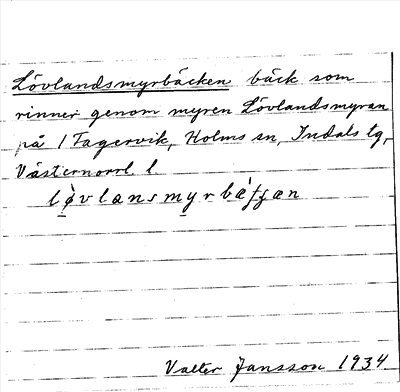 Lövlandsmyrbäcken bäck som
rinner genom myren Lövlandsmyran
på 1 Tagervik, Holms sn, Indals tg,
Västernorrl. l.
løvlansmyrbæ
Valter Jansson 1934